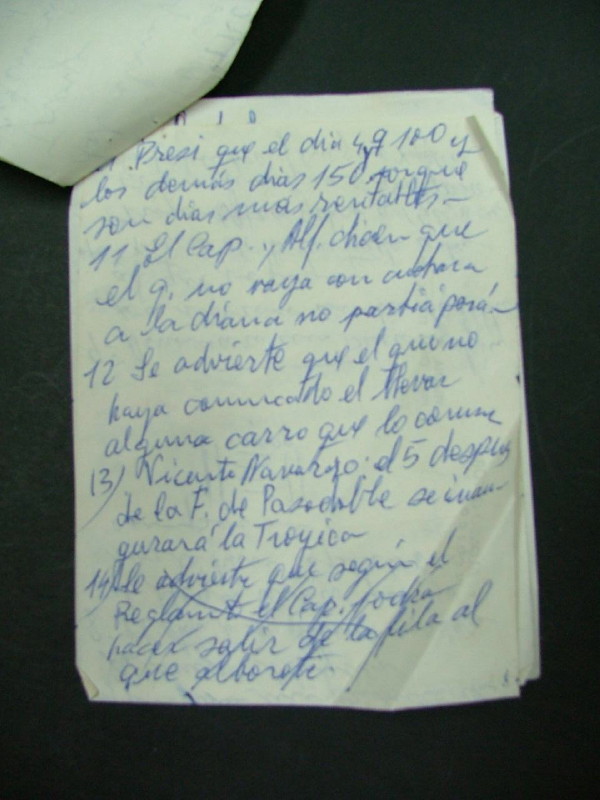 Presi que el dia 4, 9 100 y
los demás dias 150 porque
son dias mas rentables-
11 El Cap. y Alf. dicen que
el q. no vaya con
a la diana no participará-
12 Se advierte que el que no
haya comunicado el llevar
alguna carro que lo comun
13) Vicente Navarro: el 5 despues
de la F. de Pasodoble se inau-
gurará la Troyica
14) Se advierte que según el
Reglamt el Cap. podra
hacer salir de la fila al
que alborote.